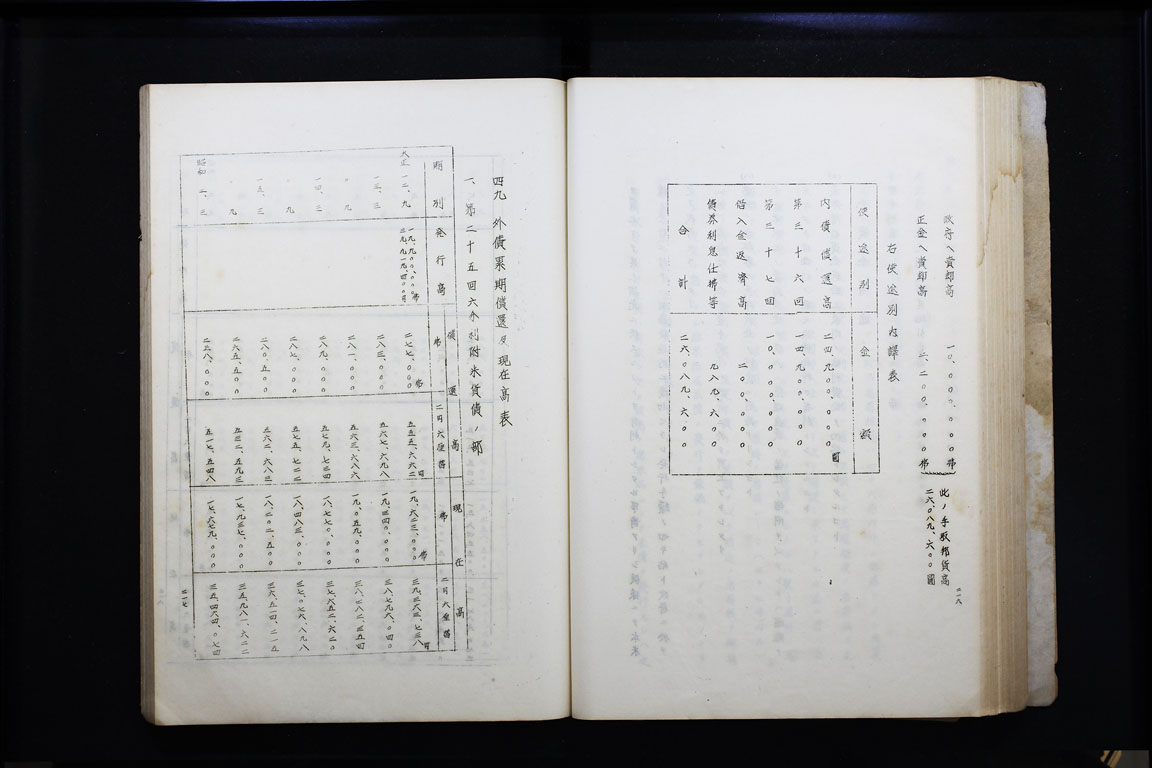 政府ヘ賣却高 一〇、〇〇〇、〇〇〇弗
正金ヘ賣却高 三、二〇〇、〇〇〇弗
此ノ手取邦貨高
二六、〇八九、六〇〇圓
二一八
右使途別内譯表
使途別 金額
内債償還高 二四、九〇〇、〇〇〇圓
第三十六回 一四、九〇〇、〇〇〇
第三十七回 一〇、〇〇〇、〇〇〇
借入金返濟高 二〇〇、〇〇〇
債券利息仕拂等 九八九、六〇〇
合計 二六、〇八九、六〇〇
四九 外債累期償還及現在高表
一、第二十五回六分利附米貨債ノ部
期別 発行高 償還高 現在高
弗 二円六厘替 弗 二円六厘替
大正一二、九 一九、九〇〇、〇〇〇弗 二七七、〇〇〇弗 五五五、六六二円 一九、六二三、〇〇〇弗 三九、三六三、七三八円
三九、九一九、四〇〇円
一三、三 二八三、〇〇〇 五六七、六九八 一九、三四〇、〇〇〇 三八、七九六、〇四〇
〃 九 二八一、〇〇〇 五六三、六八六 一九、〇五九、〇〇〇 三八、二三二、三五四
一四、三 二八九、〇〇〇 五七九、七三四 一八、七七〇、〇〇〇 三七、六五二、六二〇
〃 九 二八七、〇〇〇 五七五、七二二 一八、四八三、〇〇〇 三七、〇七六、八九八
一五、三 二八〇、五〇〇 五六二、六八三 一八、二〇二、五〇〇 三六、五一四、二一五
〃 九 二六五、五〇〇 五三二、五九三 一七、九三七、〇〇〇 三五、九八一、六二二
昭和二、三 二五八、〇〇〇 五一七、五四八 一七、六七九、〇〇〇 三五、四六四、〇七四
二一七